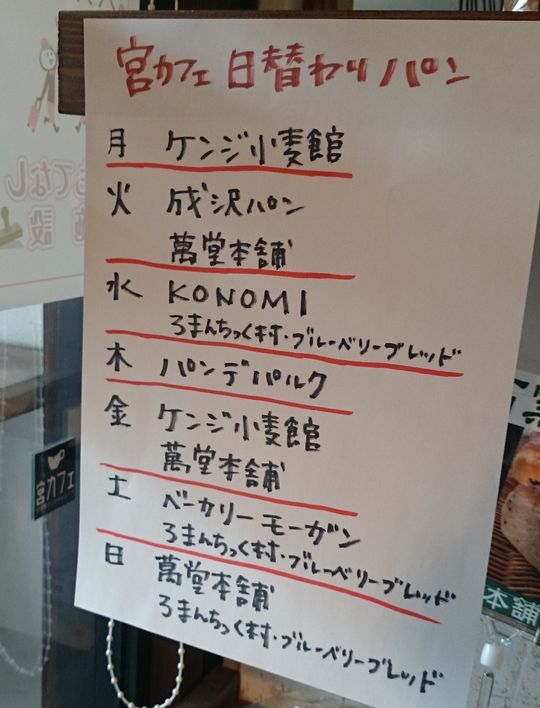 宮カフェ 日替わりパン
月 ケンジ小麦館
火 成沢パン
萬堂本舗
水 KONOMI
ろまんちっく村・ブルーベリーブレッド
木 パンデパルク
金 ケンジ小麦館
萬堂本舗
土 ベーカリーモーガン
ろまんちっく村・ブルーベリーブレッド
日 萬堂本舗
ろまんちっく村・ブルーベリーブレッド
てなし
施設
宮カフェ
本舗